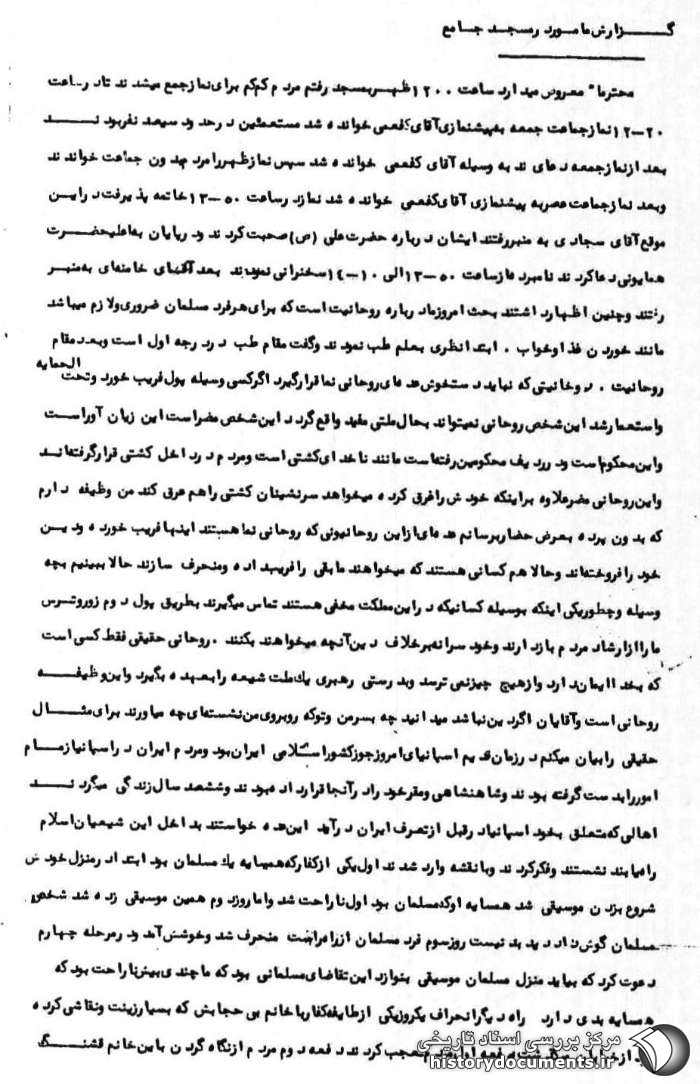 گزارش مامورد رمسجد جامع
محترما" معروض میدارد ساعت ۱۲۰۰ ظهر بمسجد رفتم مردم کم‌کم برای نماز جمع میشدند تا در ساعت
۲۰-۱۲ نماز جماعت جمعه به پیشنمازی آقای کفعمی خوانده شد مستمعین در حدود سیصد نفر بودند
بعد از نماز جمعه دعای ند به وسیله آقای کفعمی خوانده شد سپس نماز ظهر را مردم بدون جماعت خواندند
وبعد نماز جماعت عصر به پیشنمازی آقای کفعمی خوانده شد نماز در ساعت ۵۰-۱۳ خاتمه پذیرفت در این
موقع آقای سجادی به منبر رفتند ایشان درباره حضرت علی (ص) صحبت کردند و در پایان به اعلیحضرت
همایونی دعا کردند نامبرده از ساعت ۵۰-۱۳ الی ۱۰-۱۴ سخنرانی نمودند بعد آقای خامنه‌ای به منبر
رفتند وچنین اظهار داشتند بحث امروز ما درباره روحانیت است که برای هر فرد مسلمان ضروری ولازم میباشد
مانند خوردن غذا وخواب . ابتدا نظری بعلم طب نمودند وگفت مقام طب در درجه اول است وبعد مقام
روحانیت . روحانیتی که نباید دستخوش عده‌ای روحانی نما قرار گیرد اگر کسی وسیله پول فریب خورد وتحت الحمایه
واستعمار شد این شخص روحانی نمیتواند بحال ملتی مفید واقع گردد این شخص مضر است این زیان آور است
واین محکوم است ودر ردیف محکومین رفته‌است مانند ناخدای کشتی است ومردم در داخل کشتی قرار گرفته‌اند
واین روحانی مضر علاوه بر اینکه خودش را فرق کرده میخواهد سرنشینان کشتی را هم غرق کند من وظیفه دارم
که بدون پرده بعرض حضار برسانم عده‌ای از این روحانیونی که روحانی نما هستند اینها فریب خورده ودین
خود را فروخته‌اند وحالا هم کسانی هستند که میخواهند مابقی را فریب داده ومنحرف سازند حالا ببینیم بچه
وسیله وچطوریکی اینکه بوسیله کسانیکه در این مملکت مخفی هستند تماس میگیرند بطریق پول دوم زور وترس
ما را از ارشاد مردم بازدارند وخود سرانه برخلاف دین آنچه میخواهند بکنند . روحانی حقیقی فقط کسی است
که بخدا ایمان دارد واز هیچ چیز نمی ترسد وبدرستی رهبری یك ملت شیعه را بعهده بگیرد واین وظیفه
روحانی است وآقایان اگر دین نباشد میدانید چه بسر من وتو که روبروی من نشسته‌ای چه میاورند برای مثال
حقیقی را بیان میکنم در زمان قدیم اسپانیای امروز جوز کشور اسلامی ایران بود ومردم ایران در اسپانیا زمام
امور را بدست گرفته بودند وشاهنشاهی ومقر خود را در آنجا قرار داده بودند وششصد سال زندگی میکردند
اهالی که متعلق بخود اسپانیا در قبل از تصرف ایران درآمد این عده خواستند بداخل این شیعیان اسلام
راه یابند نشستند وفکر کردند وبا نقشه وارد شدند اول یکی از کفار که همسایه یك مسلمان بود ابتدا در منزل خودش
شروع بزدن موسیقی شد همسایه او که مسلمان بود اول ناراحت شد واما روز دوم همین موسیقی زده شد شخص
مسلمان گوش داد دید بد نیست روز سوم فرد مسلمان از راه راست منحرف شد وخوشش آمد ودر مرحله چهارم
دعوت کرد که بیاید منزل مسلمان موسیقی بنوازد این تقاضای مسلمانی بود که ما چندی پیش ناراحت بود که
همسایه بدی دارد راه دیگر انحراف یکروز یکی از طایفه کفار با خانم بی حجابش که بسیار زینت ونقاشی کرده
از خیابان میگذشت دفعه اول مردم تعجب کردند دفعه دوم مردم از نگاه کردن باین خانم قشنگ
مرکز بررسی اسناد تاریخی
historydocuments.ir